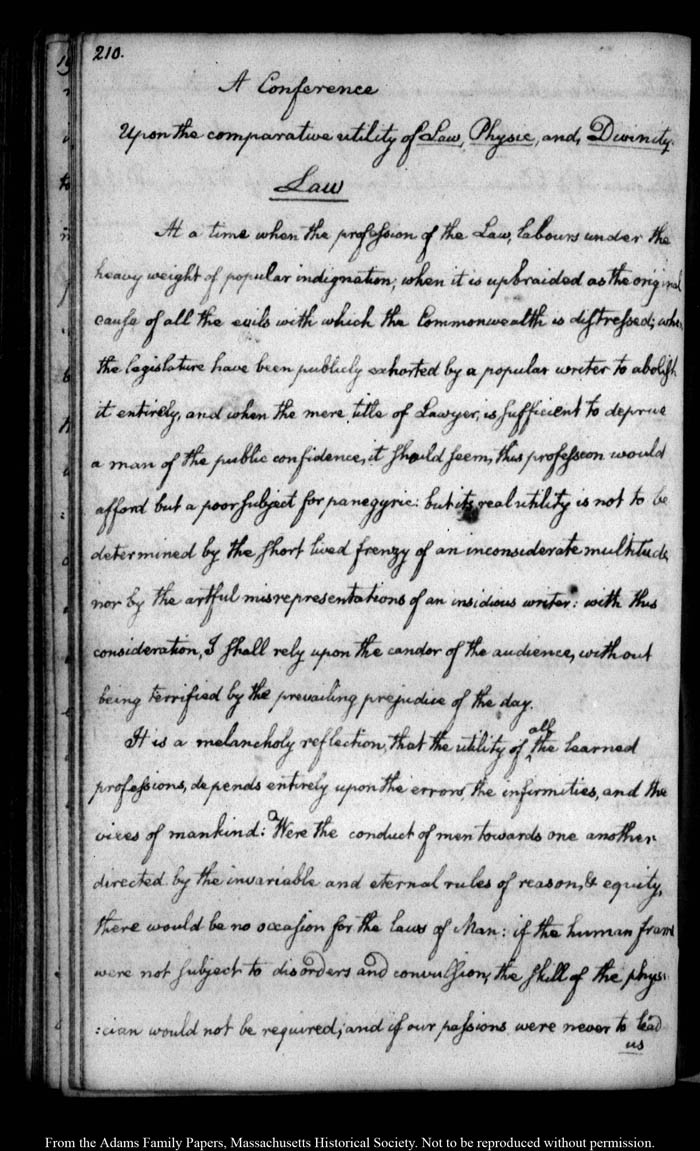 210.
A Conference
Upon the comparative utility of Law, Physic, and, Divinity.
Law
At a time when the profession of the Law, labours under the
heavy weight of popular indignation; when it is upbraided as the original
cause of all the evils with which the Commonwealth is distressed; when
the legislature have been publicly exhorted by a popular writer to abolish
it entirely, and when the mere title of Lawyer, is sufficient to deprive
a man of the public confidence, it should seem, this profession would
afford but a poor subject for panegyric: but its real utility is not to be
determined by the short lived frenzy of an inconsiderate multitude,
nor by the artful misrepresentations of an insidious writer: with this
consideration, I shall rely upon the candor of the audience, without
being terrified by the prevailing prejudice of the day.
It is a melancholy reflection, that the utility of all the learned
professions, depends entirely upon the errors, the infirmities, and the
vices of mankind: Were the conduct of men towards one another
directed by the invariable and eternal rules of reason, & equity,
there would be no occasion for the laws of Man: if the human frame
were not subject to disorders and convulsion, the skill of the physi:
:cian would not be required; and if our passions were never to lead
us
From the Adams Family Papers, Massachusetts Historical Society. Not to be reproduced without permission.